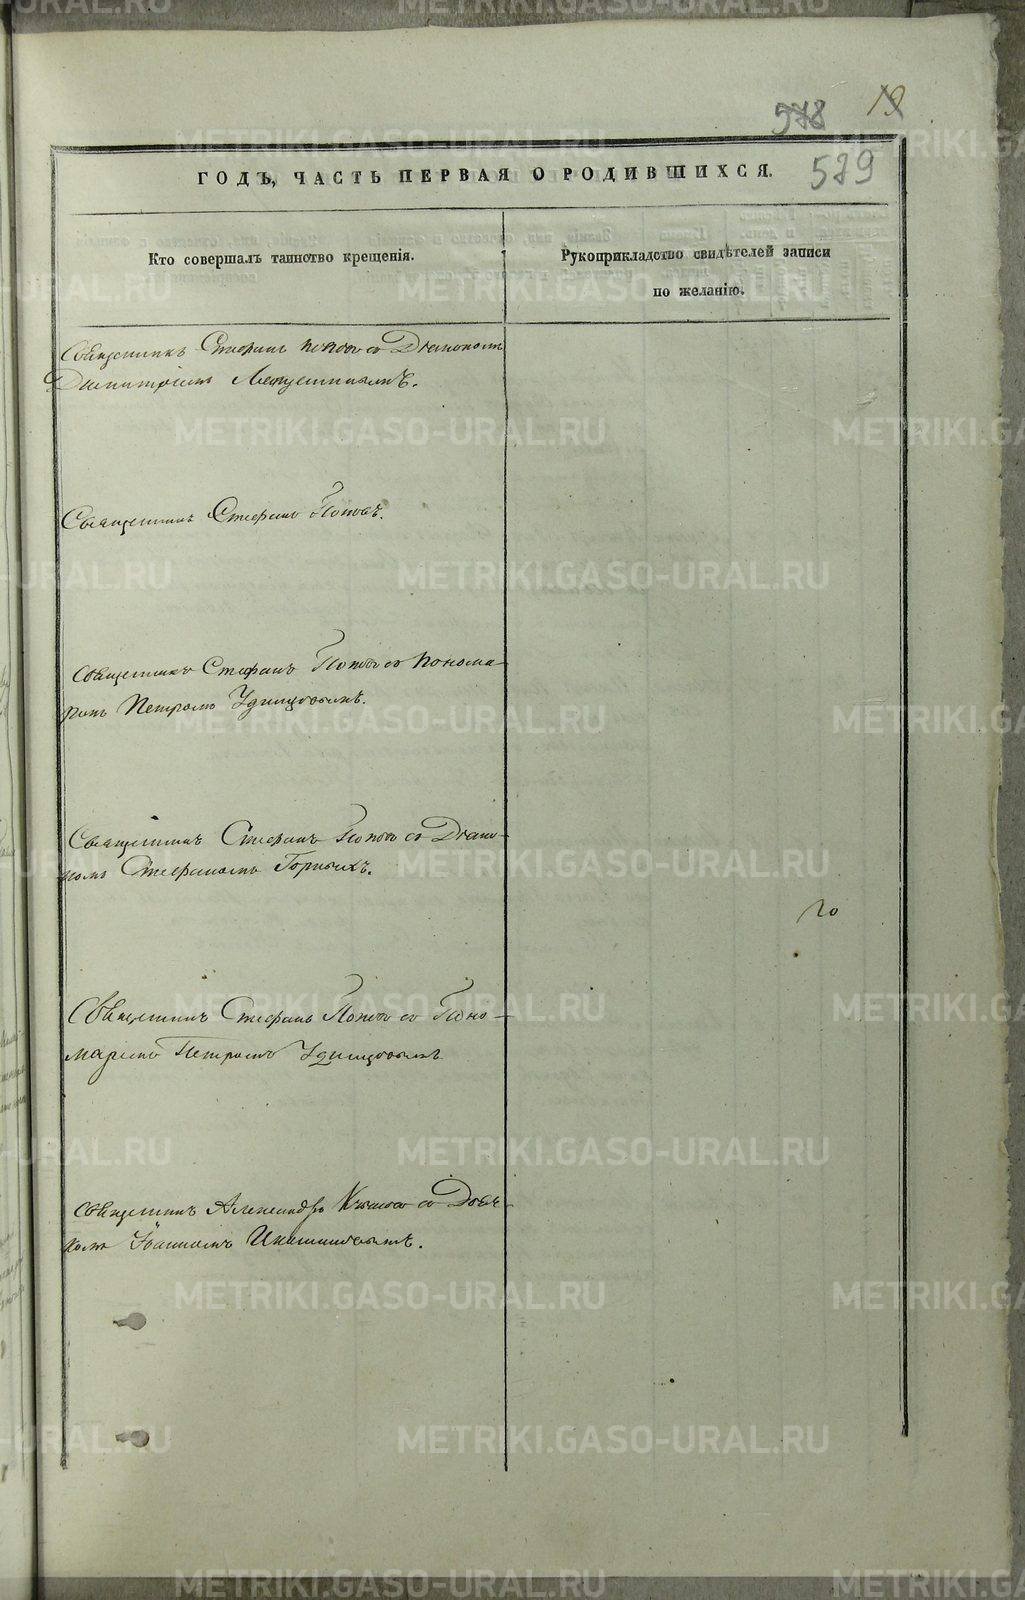 578 19
579
ГОДЪ, ЧАСТЬ ПЕРВАЯ О РОДИВШИХСЯ.
Кто совершалъ таинство крещенія.
Рукоприкладство свидѣтелей записи
по желанію.
Священникъ Стефанъ Поповъ съ Діакономъ
Димитріемъ
Священникъ Стефанъ Поповъ.
Священникъ Стефанъ Поповъ съ Понома-
ремъ Петромъ Удинцовымъ.
Священникъ Стефанъ Поповъ съ Діако-
номъ Стефаномъ Горныхъ.
20
Священникъ Стефанъ Поповъ съ Поно-
маремъ Петромъ Удинцовымъ
Священникъ Александръ съ Дьяч-
комъ Іоанномъ
METRIKI.GASO-URAL.RU